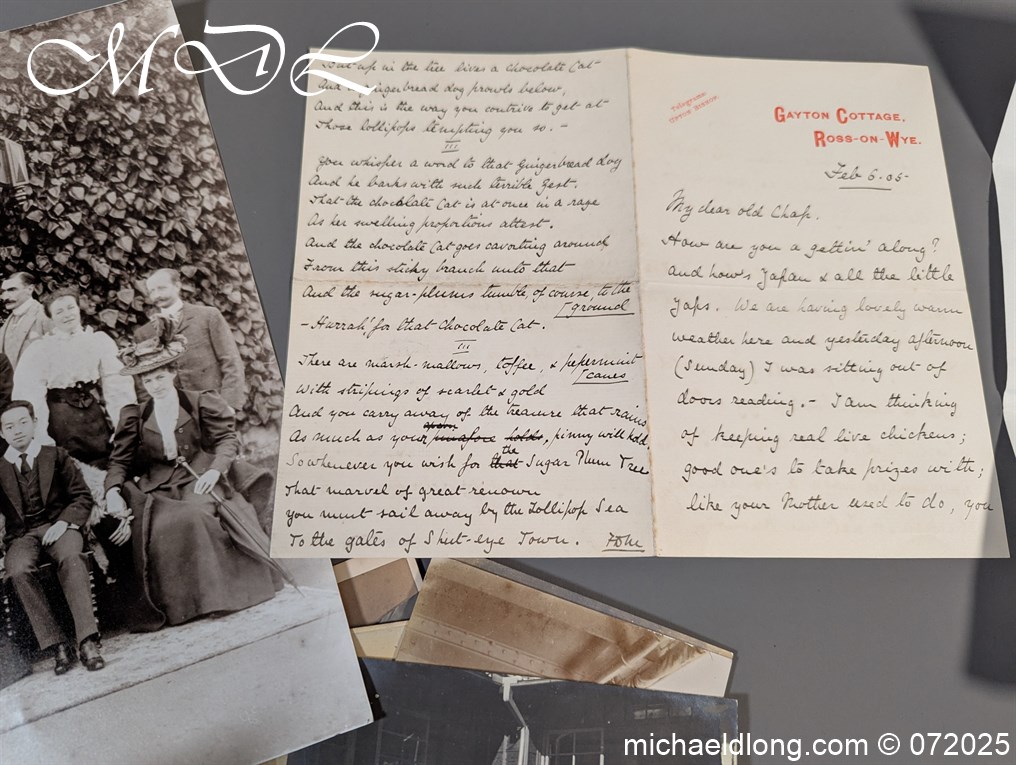 MDL
But up in the tree lives a chocolate Cat
And a gingerbread dog prowls below,
And this is the way you contrive to get at
Those lollipops tempting you so. -
III
You whisper a word to that Gingerbread dog
And he barks with such terrible zest.
That the chocolate Cat is at once in a rage
As her swelling proportions attest.
And the chocolate Cat goes cavorting around
From this sticky branch unto that
And the sugar-plums tumble, of course, to the
[ground
- Hurrah! for that Chocolate Cat.
III
There are marsh-mallows, toffee, & peppermint
[canes
With stripings of scarlet & gold
And you carry away of the treasure that rains
apron
As much as your pinafore holds, pinny will hold
the
So whenever you wish for that Sugar Plum Tree
That marvel of great renown
You must sail away by the Lollipop Sea
To the gates of Shut-eye Town.
Telegrams:
GAYTON COTTAGE.
ROSS-ON-WYE.
Feb 6. 05-
My dear old Chap.
How are you a gettin' along?
and how's Japan & all the little
Japs. We are having lovely warm
weather here and yesterday afternoon
(Sunday) I was sitting out of
doors reading. - I am thinking
of keeping real live chickens;
good one's to take prizes with;
like your Mother used to do, you
michaeldlong.com © 072025